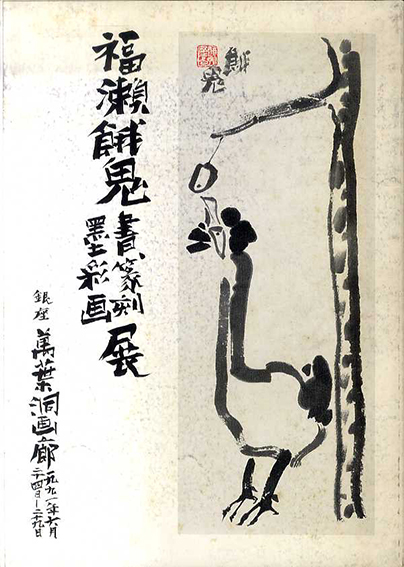 餓鬼
福瀬餓鬼
書篆刻
墨彩画
展
銀座
萬葉洞画廊
一九九一年六月
二十四日―二十九日